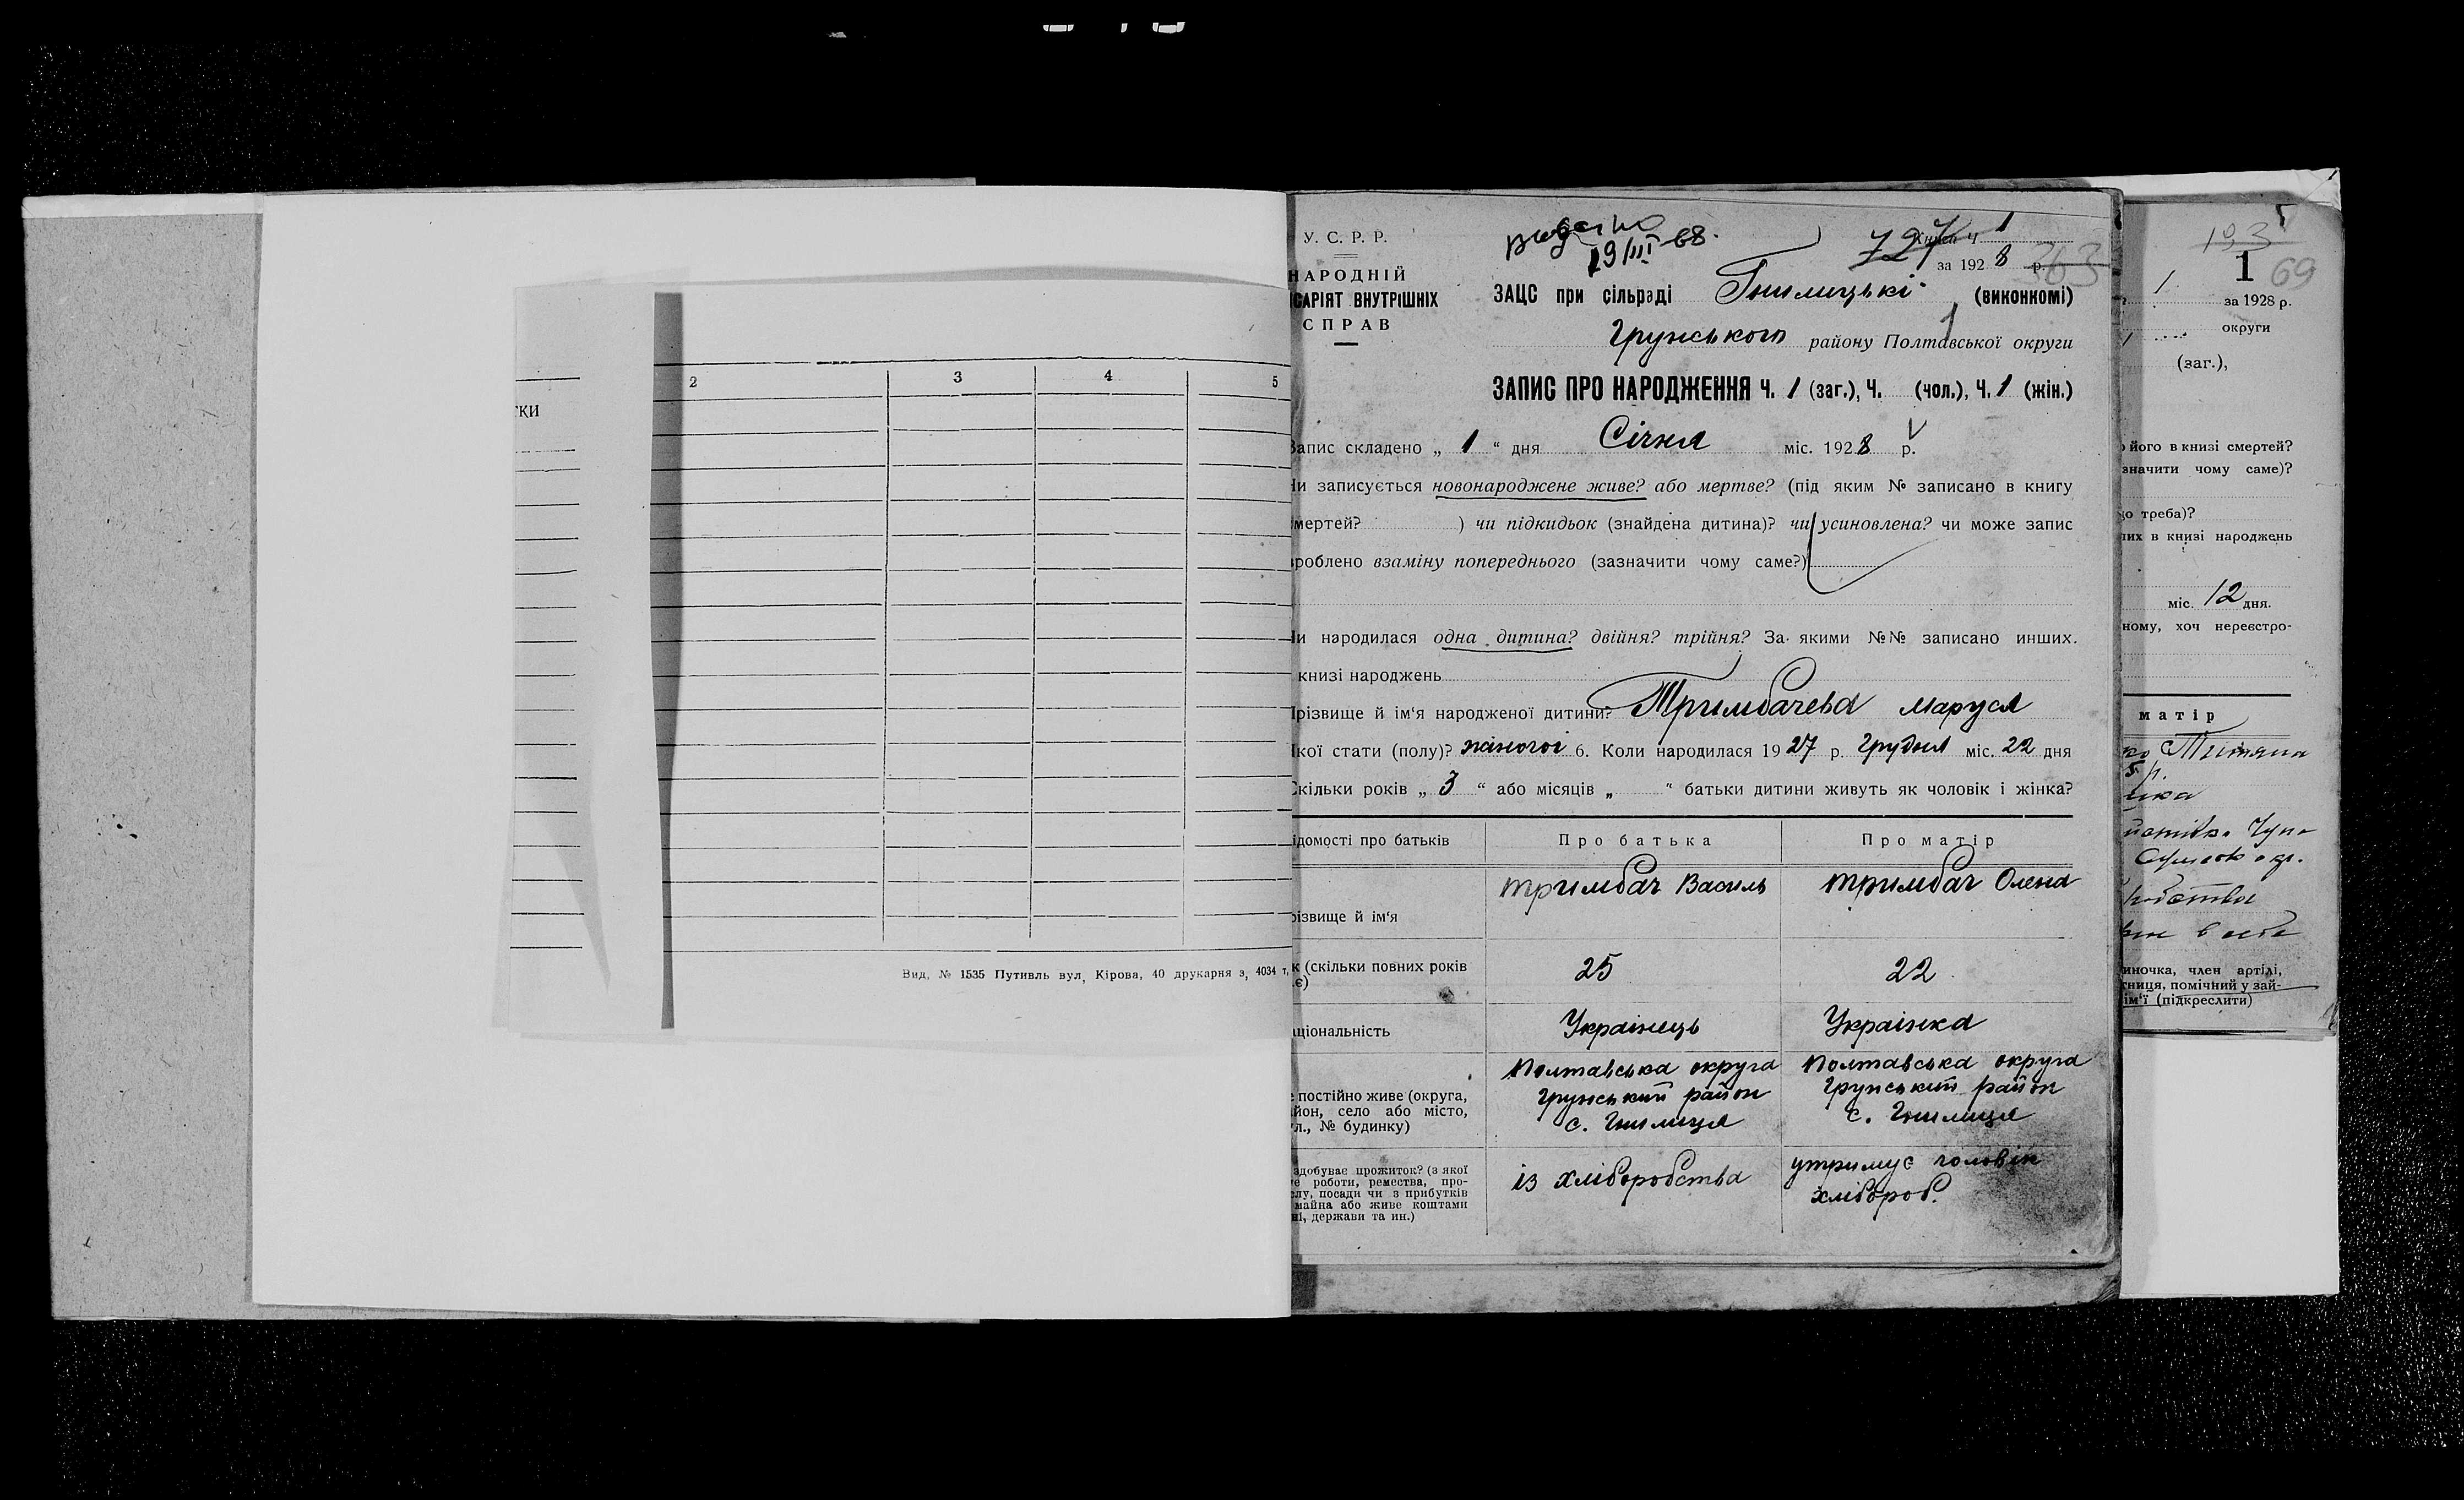 ТКИ
2 3 4 5
Вид. № 1535 Путивль вул, Кірова, 40 друкарня з, 4034 т.
У. С. Р. Р.
НАРОДНІЙ
САРІЯТ ВНУТРІШНІХ
СПРАВ
19/III-68.
727 Книга Ч 1
за 1928 р. 363
ЗАЦС при сільраді Гнилицькі (виконкомі)
Грунського району Полтавської округи
ЗАПИС ПРО НАРОДЖЕННЯ Ч. 1 (заг.), Ч. (чол.), Ч. 1 (жін.)
Запис складено „ 1 “ дня Січня міс. 1928 р.
Чи записується новонароджене живе? або мертве? (під яким № записано в книгу
мертей? ) чи підкидьок (знайдена дитина)? чи усиновлена? чи може запис
роблено взаміну попереднього (зазначити чому саме?)
Чи народилася одна дитина? двійня? трійня? За якими №№ записано инших.
книзі народжень
Прізвище й ім‘я народженої дитини? Тримбачева Маруся
Якої стати (полу)? жіночої 6. Коли народилася 1927 р. Грудня міс. 22 дня
Скільки років „ 3 “ або місяців „ “ батьки дитини живуть як чоловік і жінка?
ідомості про батьків Про батька Про матір
різвище й ім‘я Тримбач Василь Тримбач Олена
к (скільки повних років
є) 25 22
аціональність Українець Українка
постійно живе (округа,
йон, село або місто,
л., № будинку)
Полтавська округа
Грунський район
с. Гнилиця
Полтавська округа
Грунський район
с. Гнилиця
здобуває прожиток? (з якої
е роботи, ремества, про-
слу, посади чи з прибутків
майна або живе коштами
ні, держави та ин.)
із хліборобства
утримує чоловік
хлібороб.
193
1 69
1 за 1928 р.
округи
(заг.),
його в книзі смертей?
значити чому саме)?
о треба)?
их в книзі народжень
міс. 12 дня.
ному, хоч нереєстро-
матір
5 р.
иночка, член артілі,
тниця, помічний у зай-
ім‘ї (підкреслити)